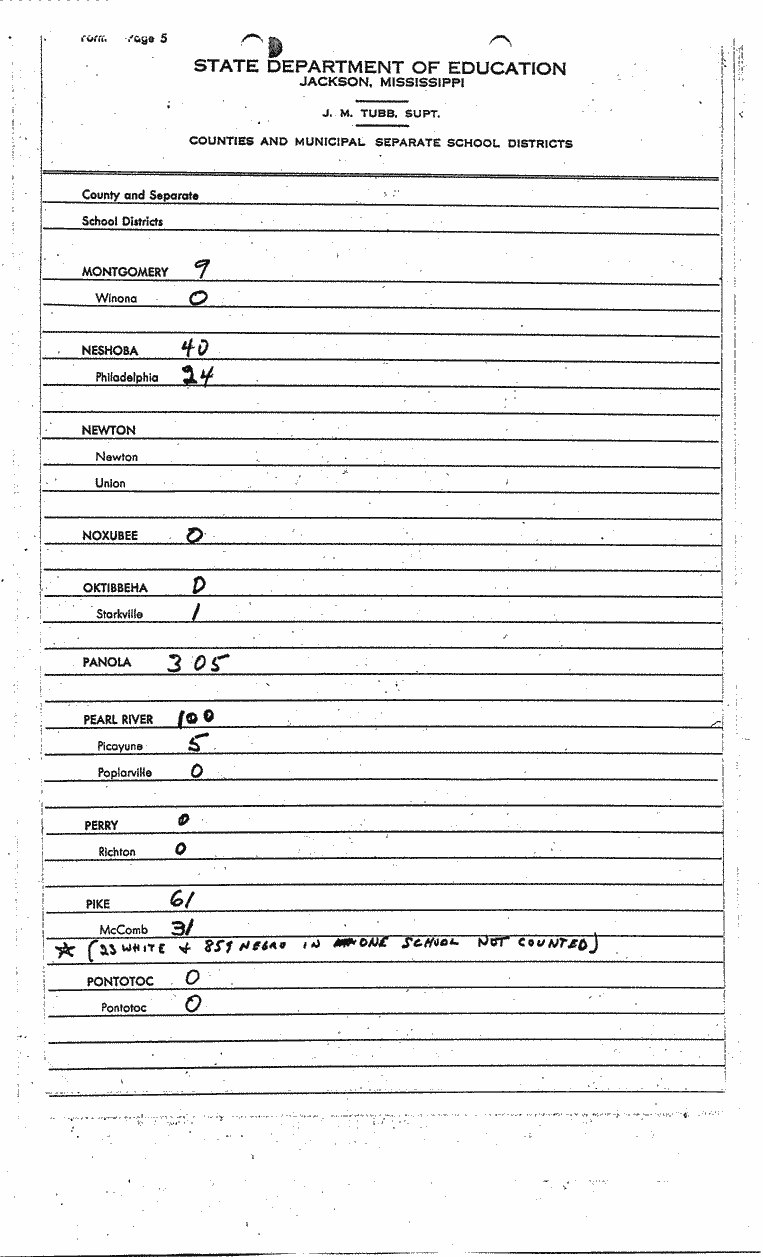 Form Page 5
STATE DEPARTMENT OF EDUCATION
JACKSON, MISSISSIPPI
J. M. TUBB, SUPT.
COUNTIES AND MUNICIPAL SEPARATE SCHOOL DISTRICTS
County and Separate
School Districts
MONTGOMERY 9
Winona 0
NESHOBA 40
Philadelphia 24
NEWTON
Newton
Union
NOXUBEE 0
OKTIBBEHA 0
Starkville 1
PANOLA 305
PEARL RIVER 100
Picayune 5
Poplarville 0
PERRY 0
Richton 0
PIKE 61
McComb 31
☆ (23 WHITE & 859 NEGRO IN ONE SCHOOL NOT COUNTED)
PONTOTOC 0
Pontotoc 0